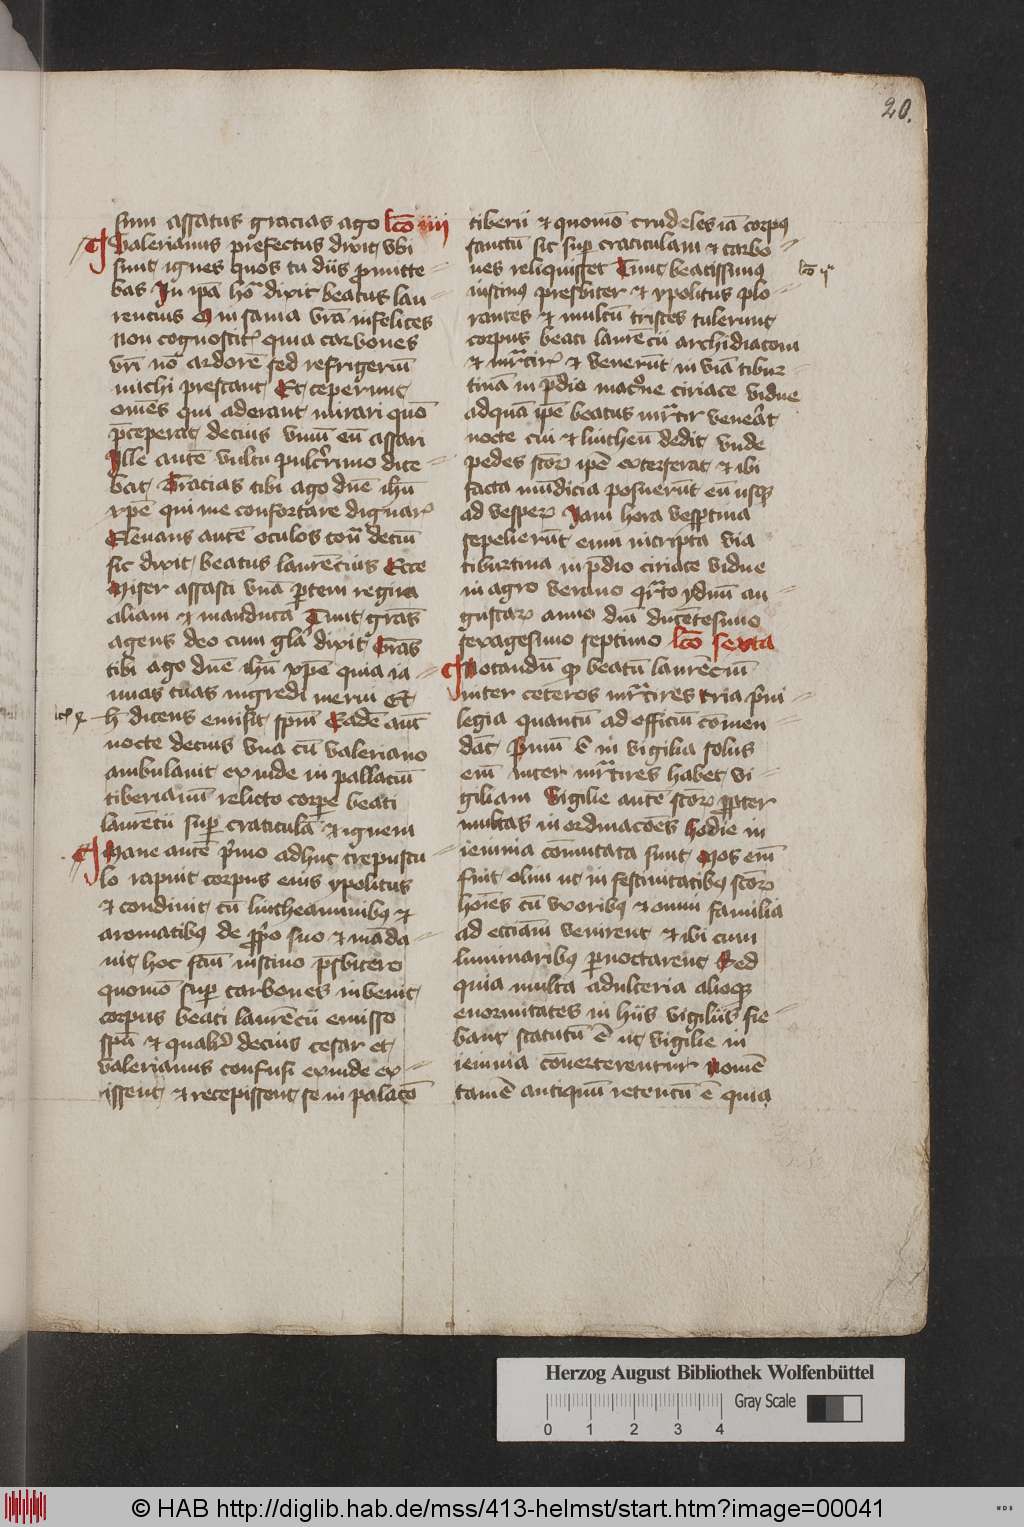 20.
sum assatus gracias ago lcō iiii
Valerianus prefectus dixit vbi
sunt ignes quos tu diis promitte=
bas In ipā hoͣ dixit beatus lau=
rencius O insania vrā infelices
non cognoscit͛ quia carbones
vrī nō ardorē sed refrigeriū
michi prestant Et ceperunt
om̄es qui aderant mirari quō
p̄ceperat decius viuū eū assari
Ille autē vultu pulcͥrimo dice=
bat Gracias tibi ago dn̄e ihū
xp̄e qui me confortare dignar͛
Eleuans autē oculos cont̄ deciū
sic dixit beatus laurēcius Ecce
Miser assasti vnā ꝑtem regira
aliam et manduca Tunc grās
agens deo cum glā dixit Grās
tibi ago dn̄e ihū xp̄e quia ia=
nuas tuas ingredi merui Et
h̄ dicens emisit sp̄m Eadē aūt
nocte decius vna cū valeriano
ambulauit exinde in pallaciū
tiberianū relicto corpe beati
laurēcii suꝑ craticulā et ignem
Mane autē pͥmo adhuc crepuscu=
lo rapuit corpus eius ypolitus
et condiuit cū lintheaminibꝰ et
aromatibꝰ de ꝓpͥo suo et māda=
uit hoc fcm̄ iustino p̄sbitero
quomō suꝑ carbones inuenit
corpus beati laurēcii emisso
spū et qualr̄ decius cesar et
valerianus confusi exinde ex=
issent et recepissent se in palacō
tiberii et quomō crudeles iā corpꝰ
sanctū sic suꝑ craticulam et carbo=
nes reliquisset Tunc beatissimꝰ
lcō vᵃ
iustinꝰ presbiter et ypolitus plo=
rantes et multū tristes tulerunt
corpus beati laurēcii archidiaconi
et mr̄tir͛ et venerūt in viā tibur=
tinā in p̄dio matͦne ciriace vidue
adquā ip̄e beatus mr̄tir veneāt
nocte cui et lintheū dedit vnde
pedes scōꝝ ip̄e exterserat et ibi
facta mūdicia posuerūt eū usqꝫ
ad vesperꝝ Iam hora vesꝑtina
sepelierūt eum incripta via
tiburtina in p̄dio ciriace vidue
in agro verano qrͣto ydꝰ au=
gustaꝝ anno dnī ducētesimo
sexagesimo septimo lcō sexta
Notandū qͣ beatū laurēciū
inter ceteros mr̄tires tria pͥui=
legia quantū ad officiū comen=
dāt Pͥmū ē in vigilia solus
em̄ inter mr̄tires habet vi=
giliam Vigilie autē scōꝝ ꝓpter
multas inordinacōes hodie in
ieiunia cōmutata sunt Mos em̄
fuit olim ut in festiuitatibꝰ scōꝝ
hoīes cū vxoribꝰ et omni familia
ad eccīam venirent et ibi cum
luminaribꝰ ꝑnoctarent Sed
quia multa adulteria alieqꝫ
enormitates in hiis vigiliis fie=
bant statutū ē ut vigilie in
ieiunia cōuerterentur nomē
tamē antiquū retentū ē quia
Herzog August Bibliothek Wolfenbüttel
0 1 2 3 4
Gray Scale
© HAB http://diglib.hab.de/mss/413-helmst/start.htm?image=00041
WDB